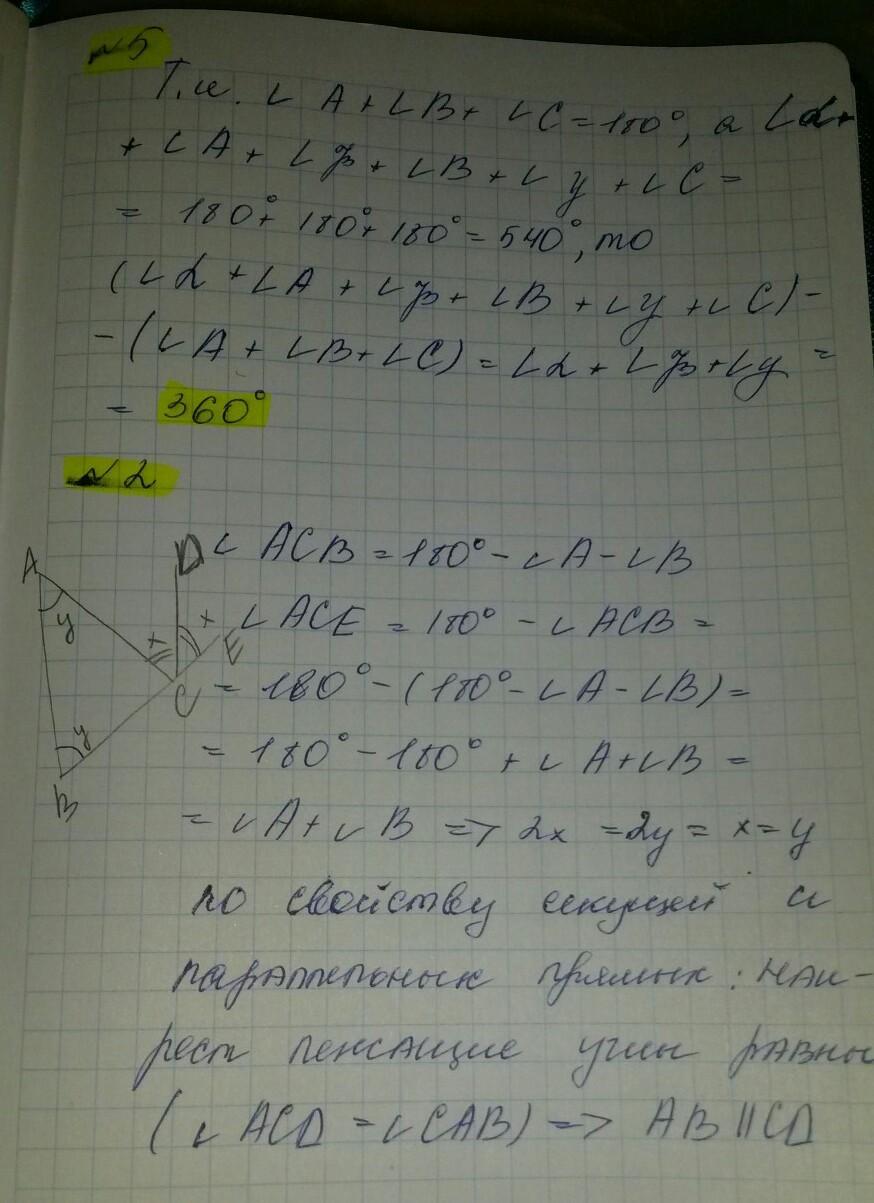 №5
Т.к. ∠A+∠B+∠C=180°, а ∠α+
+∠A+∠β+∠B+∠y+∠C=
=180°+180°+180°=540°, то
(∠α+∠A+∠β+∠B+∠y+∠C)-
-(∠A+∠B+∠C)=∠α+∠β+∠y=
=360°
№2
∠ACB=180°-∠A-∠B
∠ACE=180°-∠ACB=
=180°-(180°-∠A-∠B)=
=180°-180°+∠A+∠B=
=∠A+∠B=>2x=2y=x=y
по свойству секущей и
параллельных прямых: нак-
рест лежащие углы равны
(∠ACD=∠CAB)=>AB||CD
A
D
y
x
x
E
C
y
B